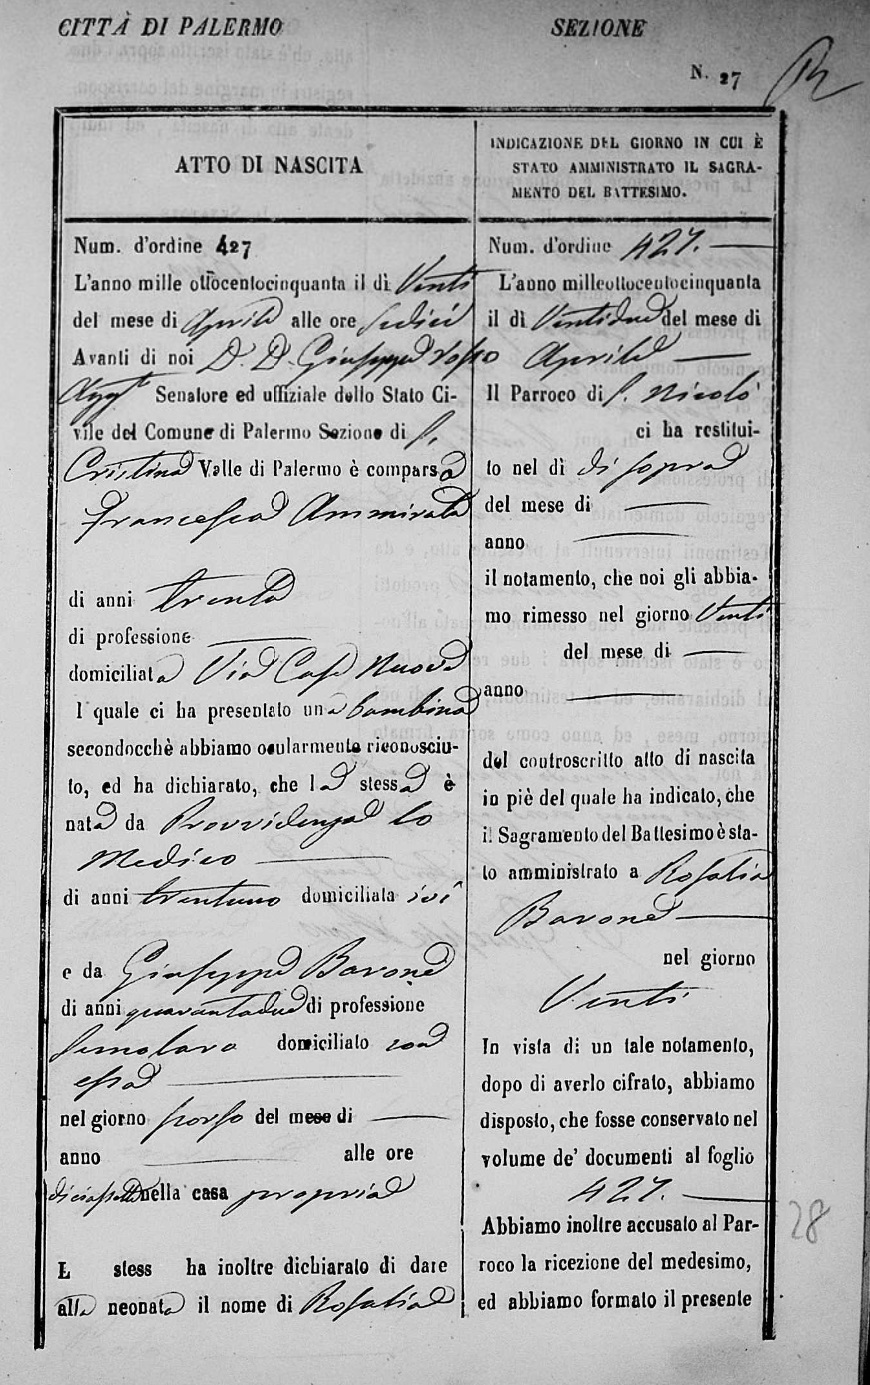 CITTÀ DI PALERMO
SEZIONE
N. 27
ATTO DI NASCITA
Num. d'ordine 427
L'anno mille ottocentocinquanta il dì Venti
del mese di Aprile alle ore sedici
Avanti di noi D. D. Giuseppe
Aggto Senatore ed uffiziale dello Stato Ci-
vile del Comune di Palermo Sezione di S.
Cristina Valle di Palermo è comparsa
Francesca Ammirata
di anni trenta
di professione
domiciliata Via Case Nuove
l quale ci ha presentato una bambina
secondocchè abbiamo ocularmente riconosciu-
to, ed ha dichiarato, che la stessa è
nata da Provvidenza Lo
Medico
di anni trentuno domiciliata ivi
e da Giuseppe Barone
di anni quarantadue di professione
Semolaro domiciliato con
essa
nel giorno scorso del mese di
anno alle ore
diciassette nella casa propria
L stess ha inoltre dichiarato di dare
alla neonata il nome di Rosalia
INDICAZIONE DEL GIORNO IN CUI È
STATO AMMINISTRATO IL SAGRA-
MENTO DEL BATTESIMO.
Num. d'ordine 427.
L'anno milleottocentocinquanta
il dì Ventidue del mese di
Aprile
Il Parroco di S. Nicolò
ci ha restitui-
to nel dì di sopra
del mese di
anno
il notamento, che noi gli abbia-
mo rimesso nel giorno Venti
del mese di
anno
del controscritto atto di nascita
in piè del quale ha indicato, che
il Sagramento del Battesimo è sta-
to amministrato a Rosalia
Barone
nel giorno
Venti
In vista di un tale notamento,
dopo di averlo cifrato, abbiamo
disposto, che fosse conservato nel
volume de' documenti al foglio
427.
Abbiamo inoltre accusato al Par-
roco la ricezione del medesimo,
ed abbiamo formato il presente
28